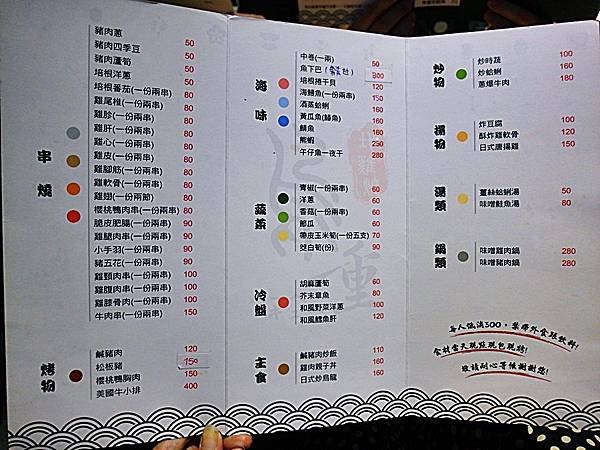 串燒
豬肉蔥 50
豬肉四季豆 50
豬肉蘆筍 50
培根洋蔥 50
培根番茄(一份兩串) 80
雞尾椎(一份兩串) 80
雞胗(一份兩串) 80
雞肝(一份兩串) 80
雞心(一份兩串) 80
雞皮(一份兩串) 80
雞腳筋(一份兩串) 80
雞軟骨(一份兩串) 80
雞翅(一份兩節) 80
櫻桃鴨肉串(一份兩串) 80
脆皮肥腸(一份兩串) 90
雞腿肉串(一份兩串) 90
小手羽(一份兩串) 90
豬五花(一份兩串) 90
雞頸肉串(一份兩串) 100
雞腹肉串(一份兩串) 100
雞膝骨肉(一份兩串) 100
牛肉串(一份兩串) 150
烤物
鹹豬肉 120
松板豬 150
櫻桃鴨胸肉 150
美國牛小排 400
海味
中卷(一兩) 50
魚下巴 300
培根捲干貝 120
海鱺魚(一份兩串) 150
酒蒸蛤蜊 160
黃瓜魚(鯚魚) 160
鯖魚 160
熊蝦 250
午仔魚一夜干 280
蔬菜
青椒(一份兩串) 60
洋蔥 60
香菇(一份兩串) 60
節瓜 60
帶皮玉米筍(一份五支) 70
茭白筍(份) 90
冷盤
胡麻蘆筍 60
芥末章魚 80
和風野菜洋蔥 100
和風鱈魚肝 120
主食
鹹豬肉炒飯 110
雞肉親子丼 160
日式炒烏龍 160
炒物
炒時蔬 100
炒蛤蜊 160
蔥爆牛肉 180
揚物
炸豆腐 100
酥炸雞軟骨 120
日式唐揚雞 150
湯類
薑絲蛤蜊湯 50
味噌鮭魚湯 80
鍋類
味噌雞肉鍋 280
味噌豬肉鍋 280
每人低消300，禁帶外食及飲料！
食材當天現班現包現烤！
敬請耐心等候謝謝您！